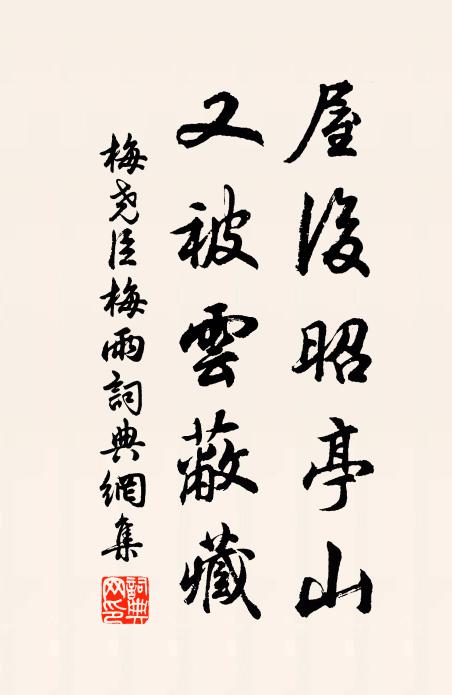 屋後昭亭山
又被雲蔽藏
梅堯臣梅雨詞典網集
詞典网印